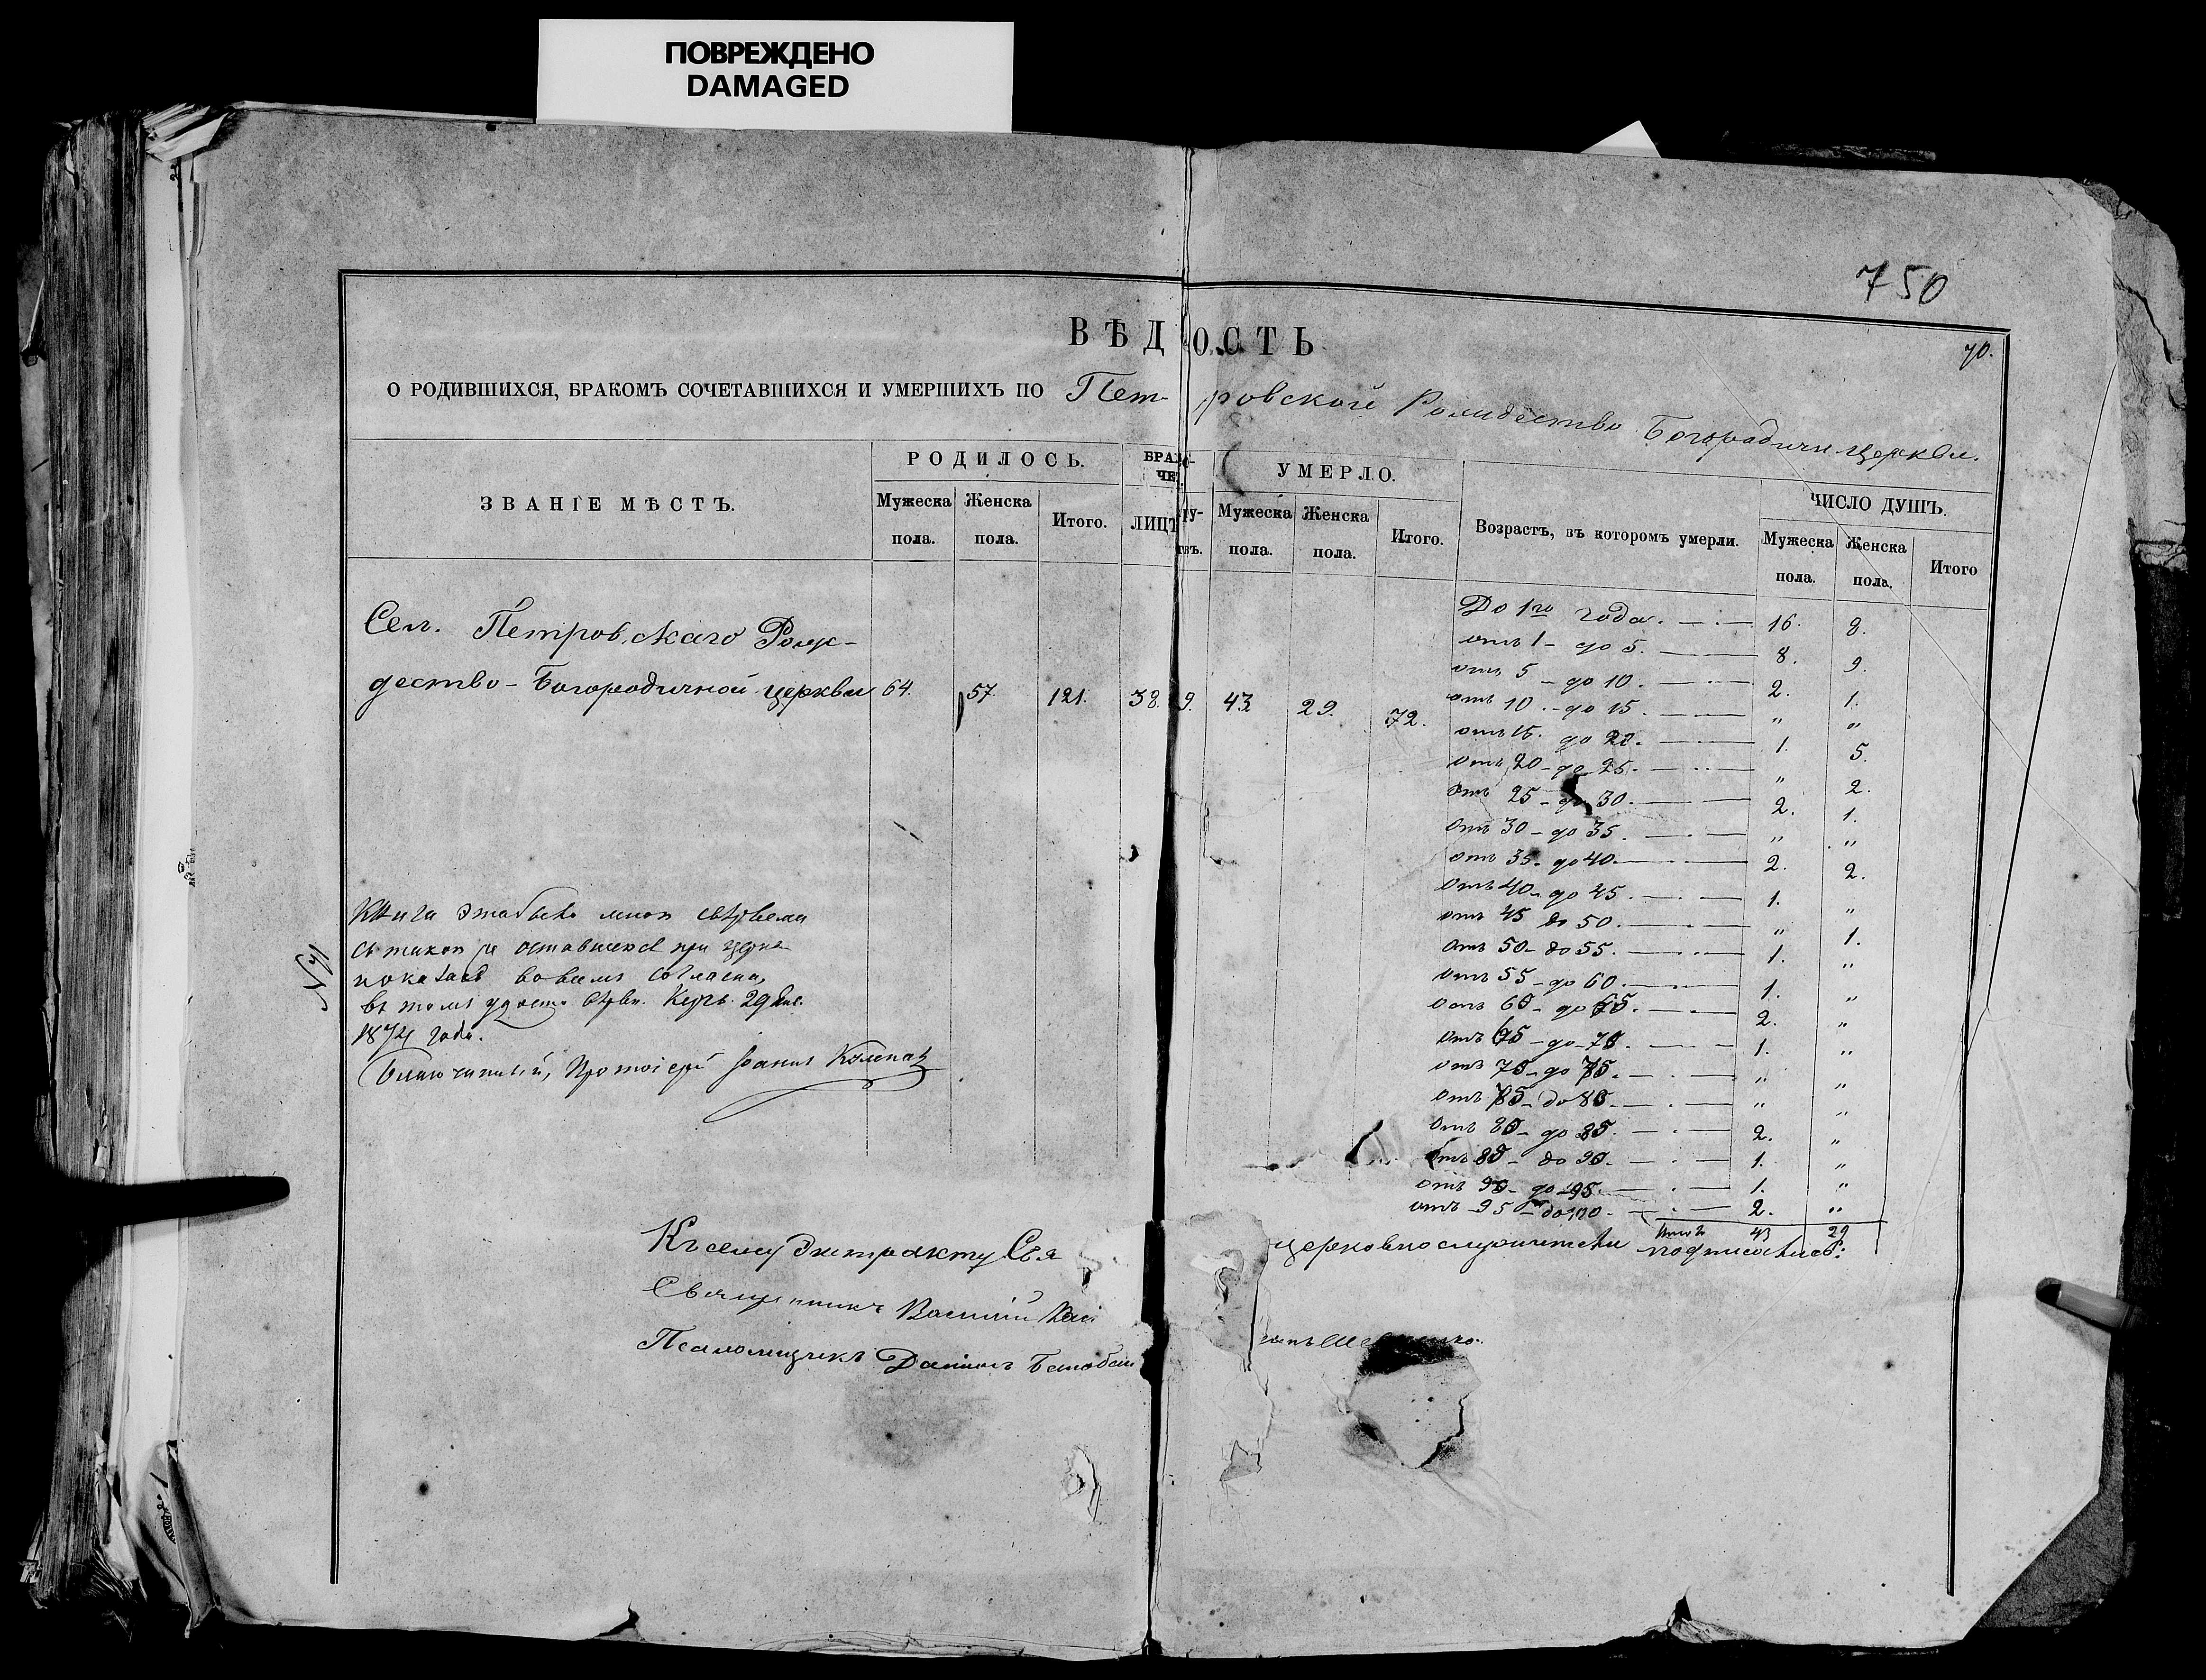 ПОВРЕЖДЕНО
DAMAGED
750
70.
ВѢДОСТЬ
О РОДИВШИХСЯ, БРАКОМЪ СОЧЕТАВШИХСЯ И УМЕРШИХЪ ПО Петровской Рождество Богородичн. церкви.
ЗВАНІЕ МѢСТЪ.
РОДИЛОСЬ.
Мужеска пола.
Женска пола.
Итого.
ЛИЦЪ
УМЕРЛО.
Мужеска пола.
Женска пола.
Итого.
Возрастъ, въ которомъ умерли.
ЧИСЛО ДУШЪ.
Мужеска пола.
Женска пола.
Итого
Сел. Петровскаго Рож-
дество-Богородичной церкви 64. 57. 121. 38. 9. 43 29. 72.
До 1го года. 16. 8.
отъ 1 - до 5. 8. 9.
отъ 5 - до 10. 2. 1.
отъ 10 - до 15. " "
отъ 15. до 20. 1. 5.
отъ 20 - до 25. " 2.
отъ 25 - до 30. 2. 1.
отъ 30 - до 35. " "
отъ 35 - до 40. 2. 2.
отъ 40 - до 45. 1. "
отъ 45 до 50. " 1.
отъ 50 - до 55. 1. "
отъ 55 - до 60. 1. "
отъ 60 - до 65. 2. "
отъ 65 - до 70. 1. "
отъ 70 - до 75. " "
отъ 75 - до 80. " "
отъ 80 - до 85. 2. "
отъ 85 - до 90. 1. "
отъ 90 - до 95. 1. "
отъ 95 - до 100. 2. "
Итого 43 29
Книга эта была мною свѣрена
съ такою же оставшеюся при церк.
во всемъ согласна,
въ томъ 29 Янв.
1874 года.
Благочинный, Протоіерей Іоаннъ
Къ сему Экстракту Свя церковнослужители подписались:
Священникъ Василій
Псаломщикъ Даніилъ